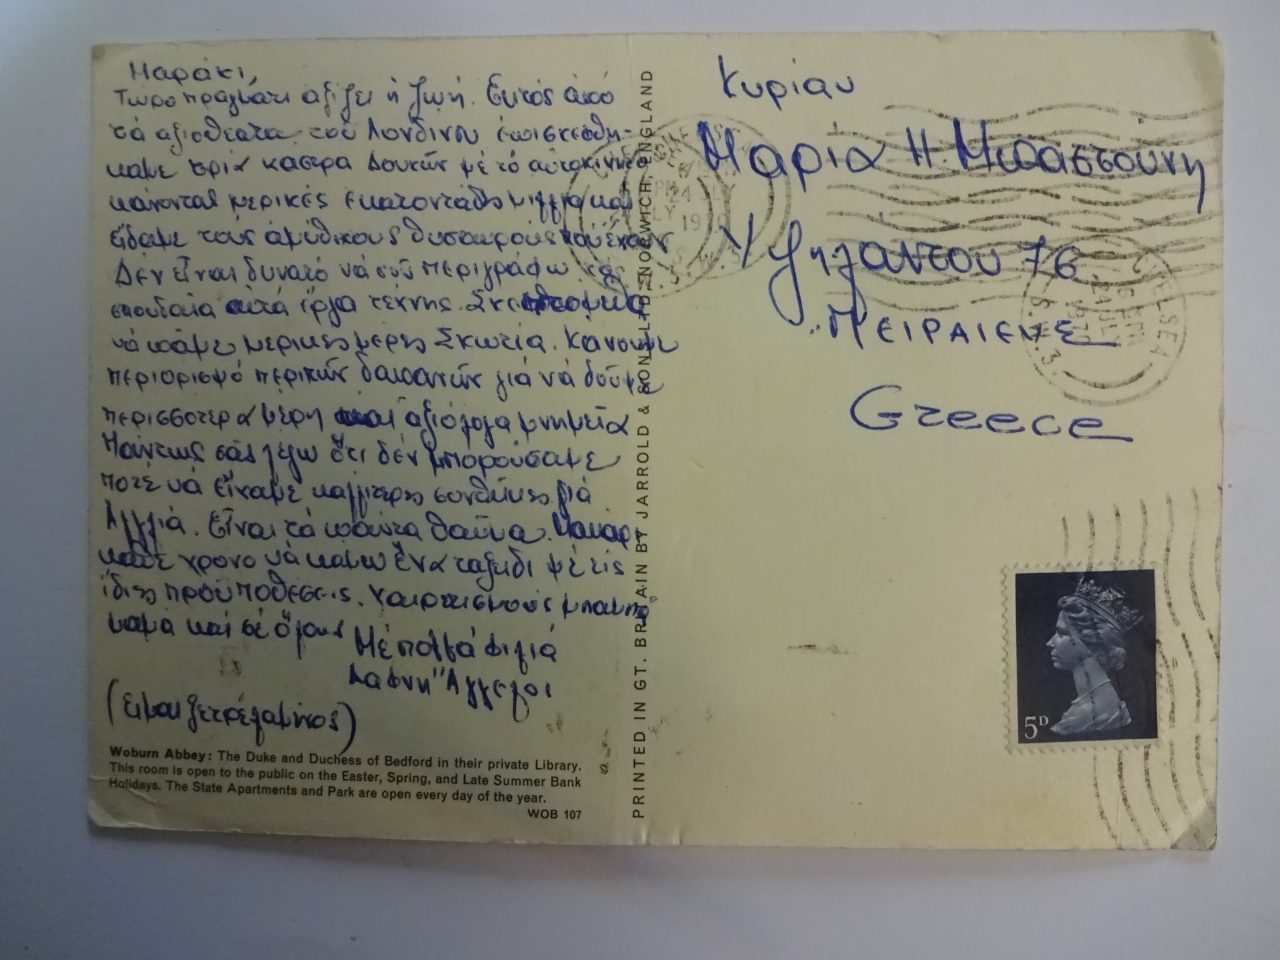 Μαράκι,
Τώρα πραγματι αξίζει ή ζωή. Εκτός ἀπό
τά αξιοθεατα του Λονδίνου ἐπισκεφθή-
καμε τρία καστρα Δουκῶν μέ τό αὐτοκίνητο
κάνοντας μερικές εκατοντάδες μίλλια και
εἴδαμε τούς ἀμύθικους θυσαυρούς που έχουν
Δέν εἶναι δυνατό νά σοῦ περιγράφω τά
σπουδαία αὐτά ἔργα τέχνης. Σκεπτομαι
νά πάμε μερικες μέρες Σκωτία. Κάνουμε
περιορισμό μερικῶν δαπανῶν γιά νά δοῦμε
περισσοτερα μέρη και αξιόλογα μνημεῖα
Πάντως σᾶς λέγω ὅτι δέν μπορούσαμε
ποτέ νά εἴχαμε καλλιτερες συνθῆκες γιά
Αγγλιά. Εἶναι τά πάντα θαῦμα. Μακάρι
κάθε χρονο νά κανω ἕνα ταξιδι μέ τίς
ἴδιες προϋποθέσεις. Χαιρετισμούς μπαμπά
μαμά καί σέ ὅλους Μέ πολλά φιλιά
Δαφνη Ἄγγελοι
(Ειμαι ξετρελαμένος)
Woburn Abbey: The Duke and Duchess of Bedford in their private Library.
This room is open to the public on the Easter, Spring, and Late Summer Bank
Holidays. The State Apartments and Park are open every day of the year.
WOB 107
PRINTED IN GT. BRITAIN BY JARROLD & SONS LTD. NORWICH, ENGLAND
Κυρίαν
Μαρία Η. Μπαστούνη
Ὑψηλάντου 76
ΠΕΙΡΑΙΕΥΣ
Greece
CHELSEA
24 JLY
1970
S.W.3.
5D